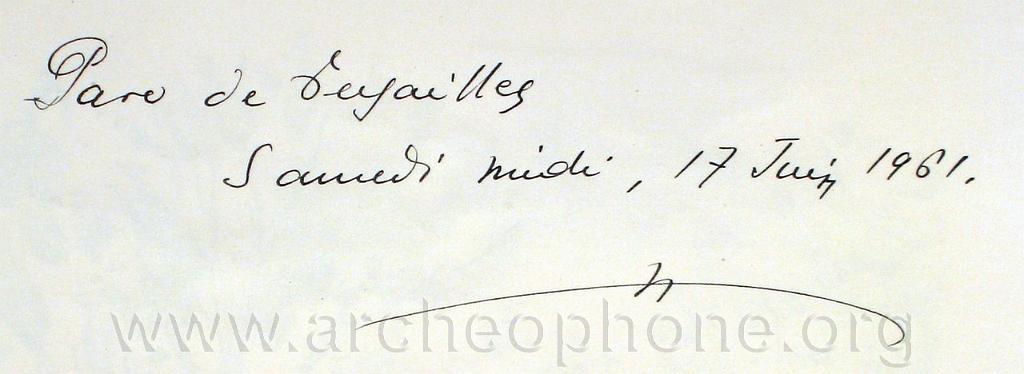 Parc de Versailles
Samedi midi, 17 Juin 1961.
www.archeophone.org